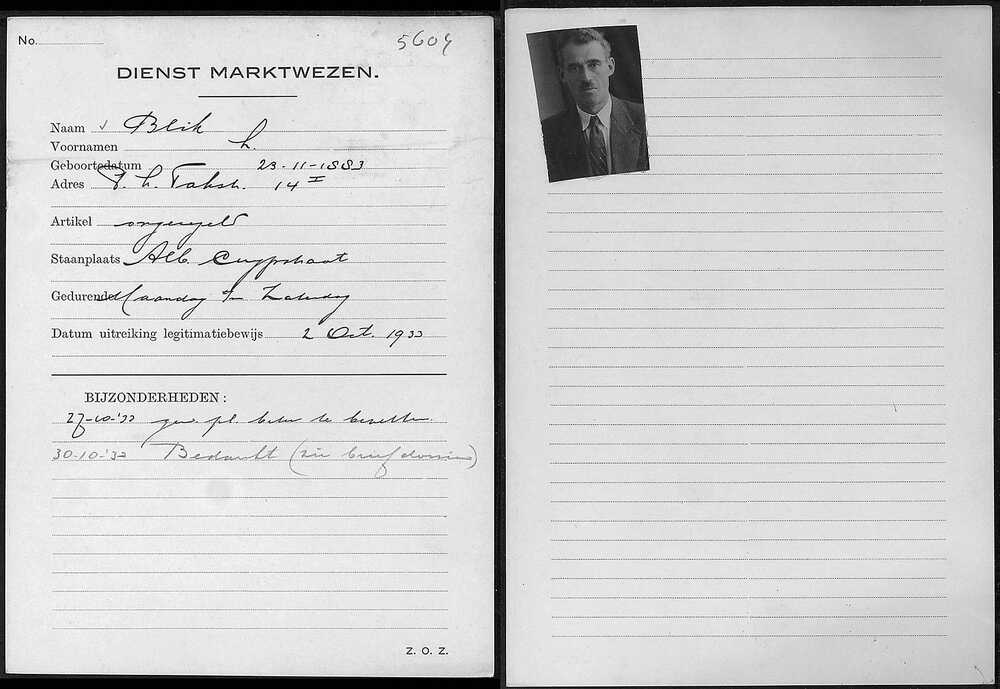 No.
5604
DIENST MARKTWEZEN.
Naam Blik
Voornamen h.
Geboortedatum 23-11-1883
Adres J. h. Takstr. 14 I
Artikel ongeregeld
Staanplaats Alb. Cuypstraat
Gedurende Maandag t/m Zaterdag
Datum uitreiking legitimatiebewijs 2 Oct. 1933
BIJZONDERHEDEN:
27-10-'33 gew. pl. beter te bezetten.
30-10-'33 Bedankt (zie briefdossier)
Z. O. Z.